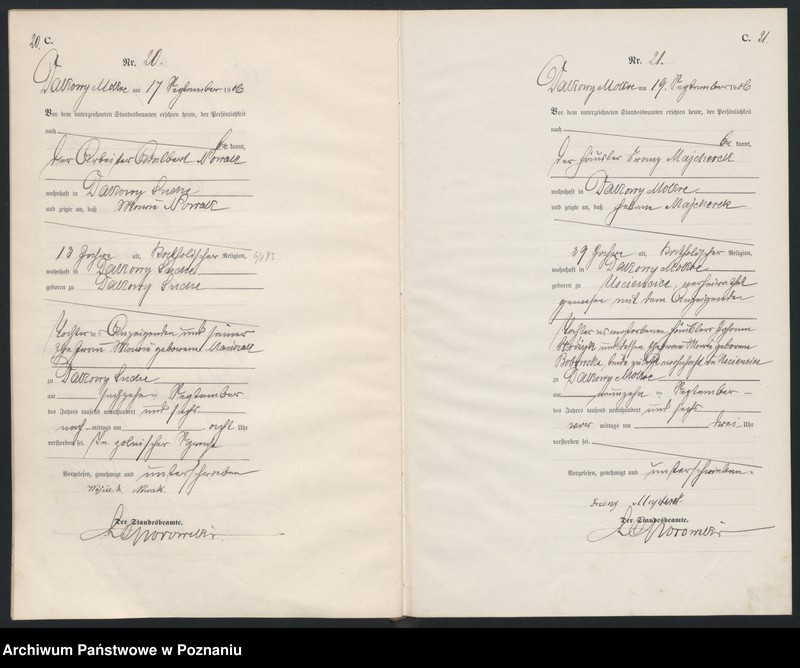 20. C.
Nr. 20.
Dakowy Mokre am 17 September 1906
Vor dem unterzeichneten Standesbeamten erschien heute, der Persönlichkeit
nach
be kannt,
der Arbeiter Adalbert Nowak
wohnhaft in Dakowy Suche
und zeigte an, daß Nowak
13 Jahre alt, katholischer Religion,
wohnhaft in Dakowy Suche
geboren zu Dakowy Suche
Tochter des Anzeigenden und seiner
Ehefrau geborenen
zu Dakowy Suche
am September
des Jahres tausend neunhundert und sechs
nach mittags um acht Uhr
verstorben sei. In polnischer Sprache
Vorgelesen, genehmigt und unterschrieben
Nowak
Der Standesbeamte.
C. 21.
Nr. 21.
Dakowy Mokre am 19. September 1906
Vor dem unterzeichneten Standesbeamten erschien heute, der Persönlichkeit
nach
be kannt,
der Häusler Franz Majcherek
wohnhaft in Dakowy Mokre
und zeigte an, daß Majcherek
39 Jahre alt, katholischer Religion,
wohnhaft in Dakowy Mokre
geboren zu Usciencice, verheirathet
gewesen mit dem Anzeigenden
Tochter des verstorbenen Häuslers
und dessen Ehefrau geborene
beide zuletzt wohnhaft in Usciencice
zu Dakowy Mokre
am neunzehn September
des Jahres tausend neunhundert und sechs
vor mittags um drei Uhr
verstorben sei.
Vorgelesen, genehmigt und unterschrieben.
Majcherek
Der Standesbeamte.
Archiwum Państwowe w Poznaniu